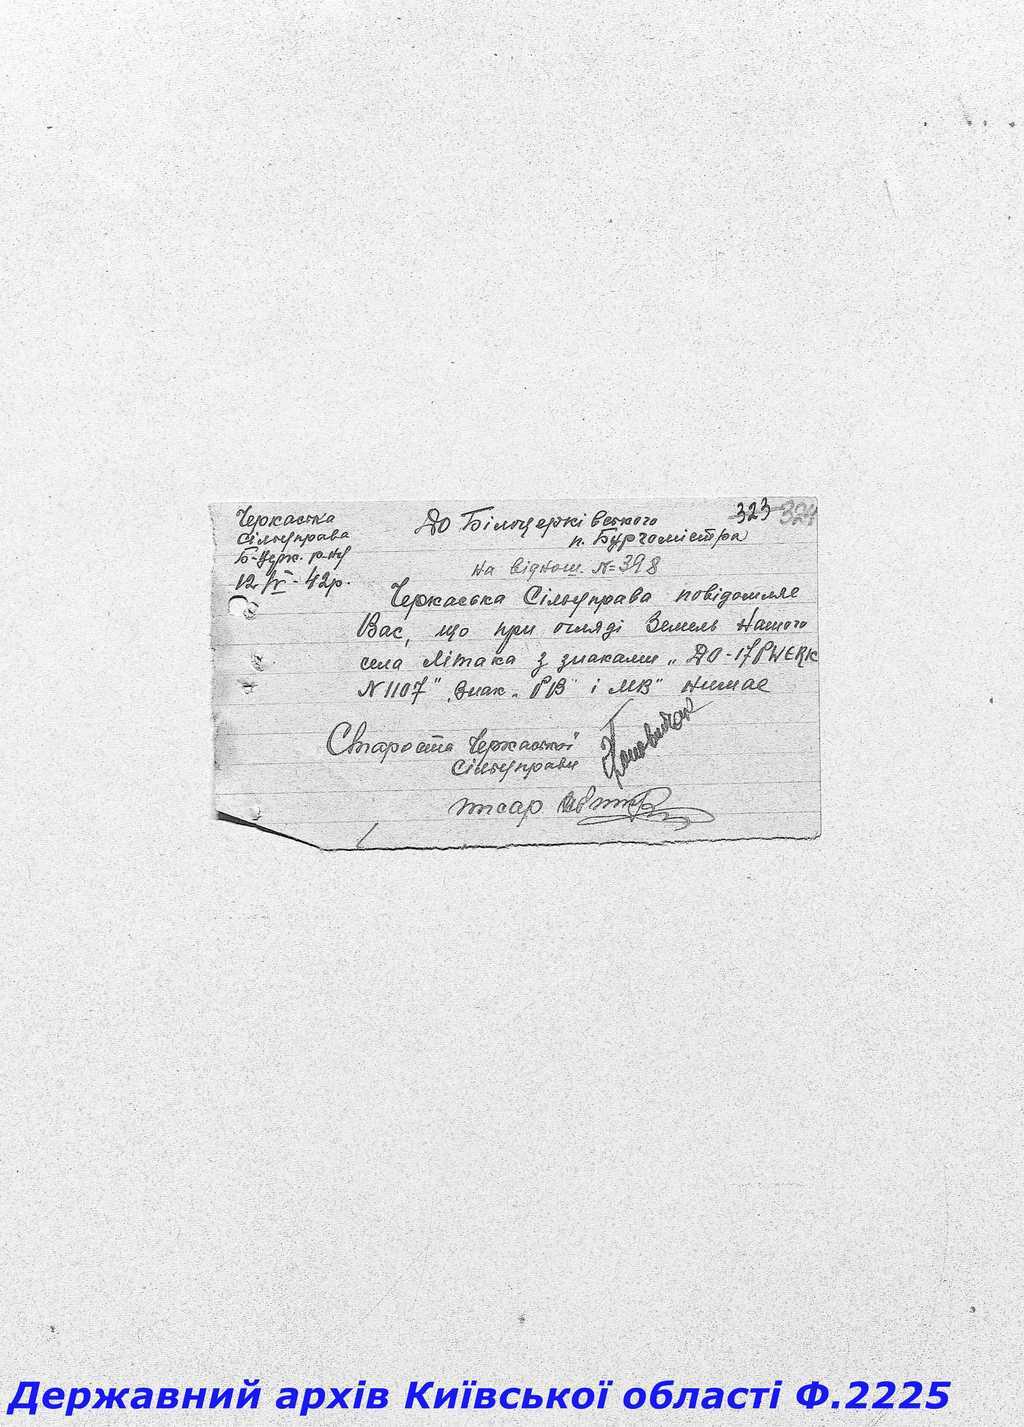 Черкаська
Сільуправа
Б-Церк. р-ну
12/IV-42р.
323 324
До Білоцерківського
п. Бургомістра
на віднош. №398
Черкаська Сільуправа повідомляє
Вас, що при огляді Земель Нашого
села Літака з знаками „ДО-17PWERK
N1107" „Знак „РВ" і МВ" нимає
Староста Черкаської
Сільуправи
писар
Державний архів Київської області Ф.2225